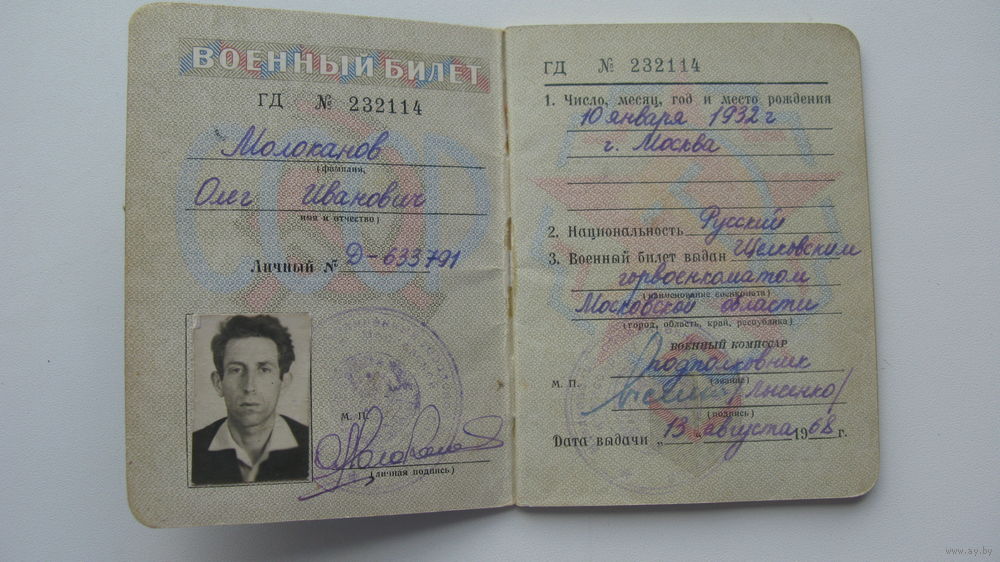 ВОЕННЫЙ БИЛЕТ
ГД № 232114
Молоканов
(фамилия,
Олег Иванович
имя и отчество)
Личный № Д-633791
М. П.
(личная подпись)
ГД № 232114
1. Число, месяц, год и место рождения
10 января 1932 г
г. Москва
2. Национальность Русский
3. Военный билет выдан Щелковским
горвоенкоматом
(наименование военкомата)
Московской области
(город, область, край, республика)
ВОЕННЫЙ КОМИССАР
подполковник
(звание)
М. П.
/Лысенко/
(подпись)
Дата выдачи „13 „ августа 1968 г.
www.ay.by